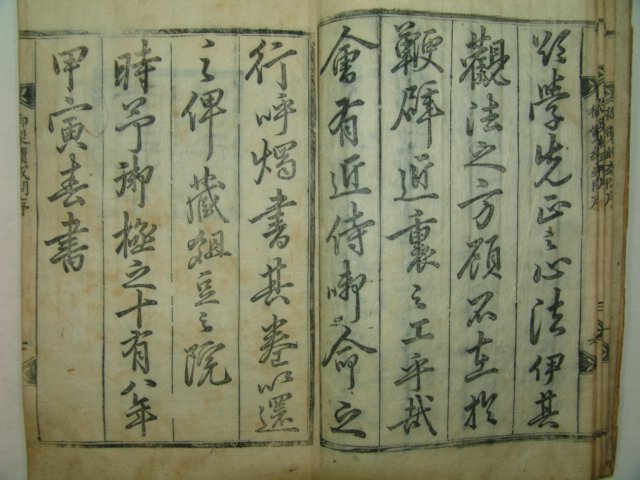 欲學先正之心法伊其
觀法之方顧不直於
鞭辟近裏之工乎哉
會有近侍啣命之
行呼燭書其卷以還
之俾藏俎豆之院
時予御極之十有八年
甲寅春書